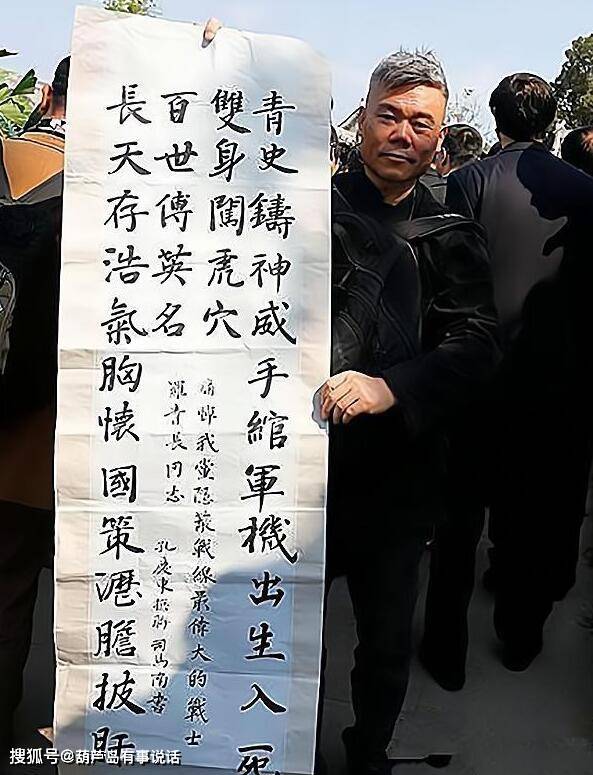 青史鑄神威手綰軍機出生入死
雙身闖虎穴
百世傳英名
長天存浩氣胸懷國策瀝膽披肝
痛悼我黨隱蔽戰線最偉大的戰士
羅青長同志
孔慶東撰聯 司馬南書
搜狐号@葫芦岛有事说话